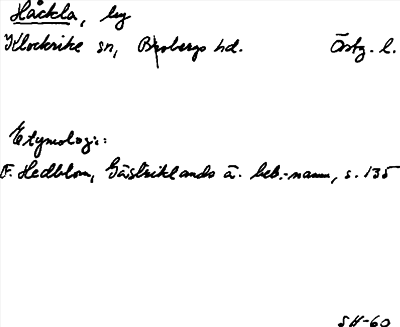 Håckla, by
Klockrike sn, Bobergs hd. Östg. l.
Etymologi:
F. Hedblom, Gästriklands ä. beb.-namn, s. 135
SH-60